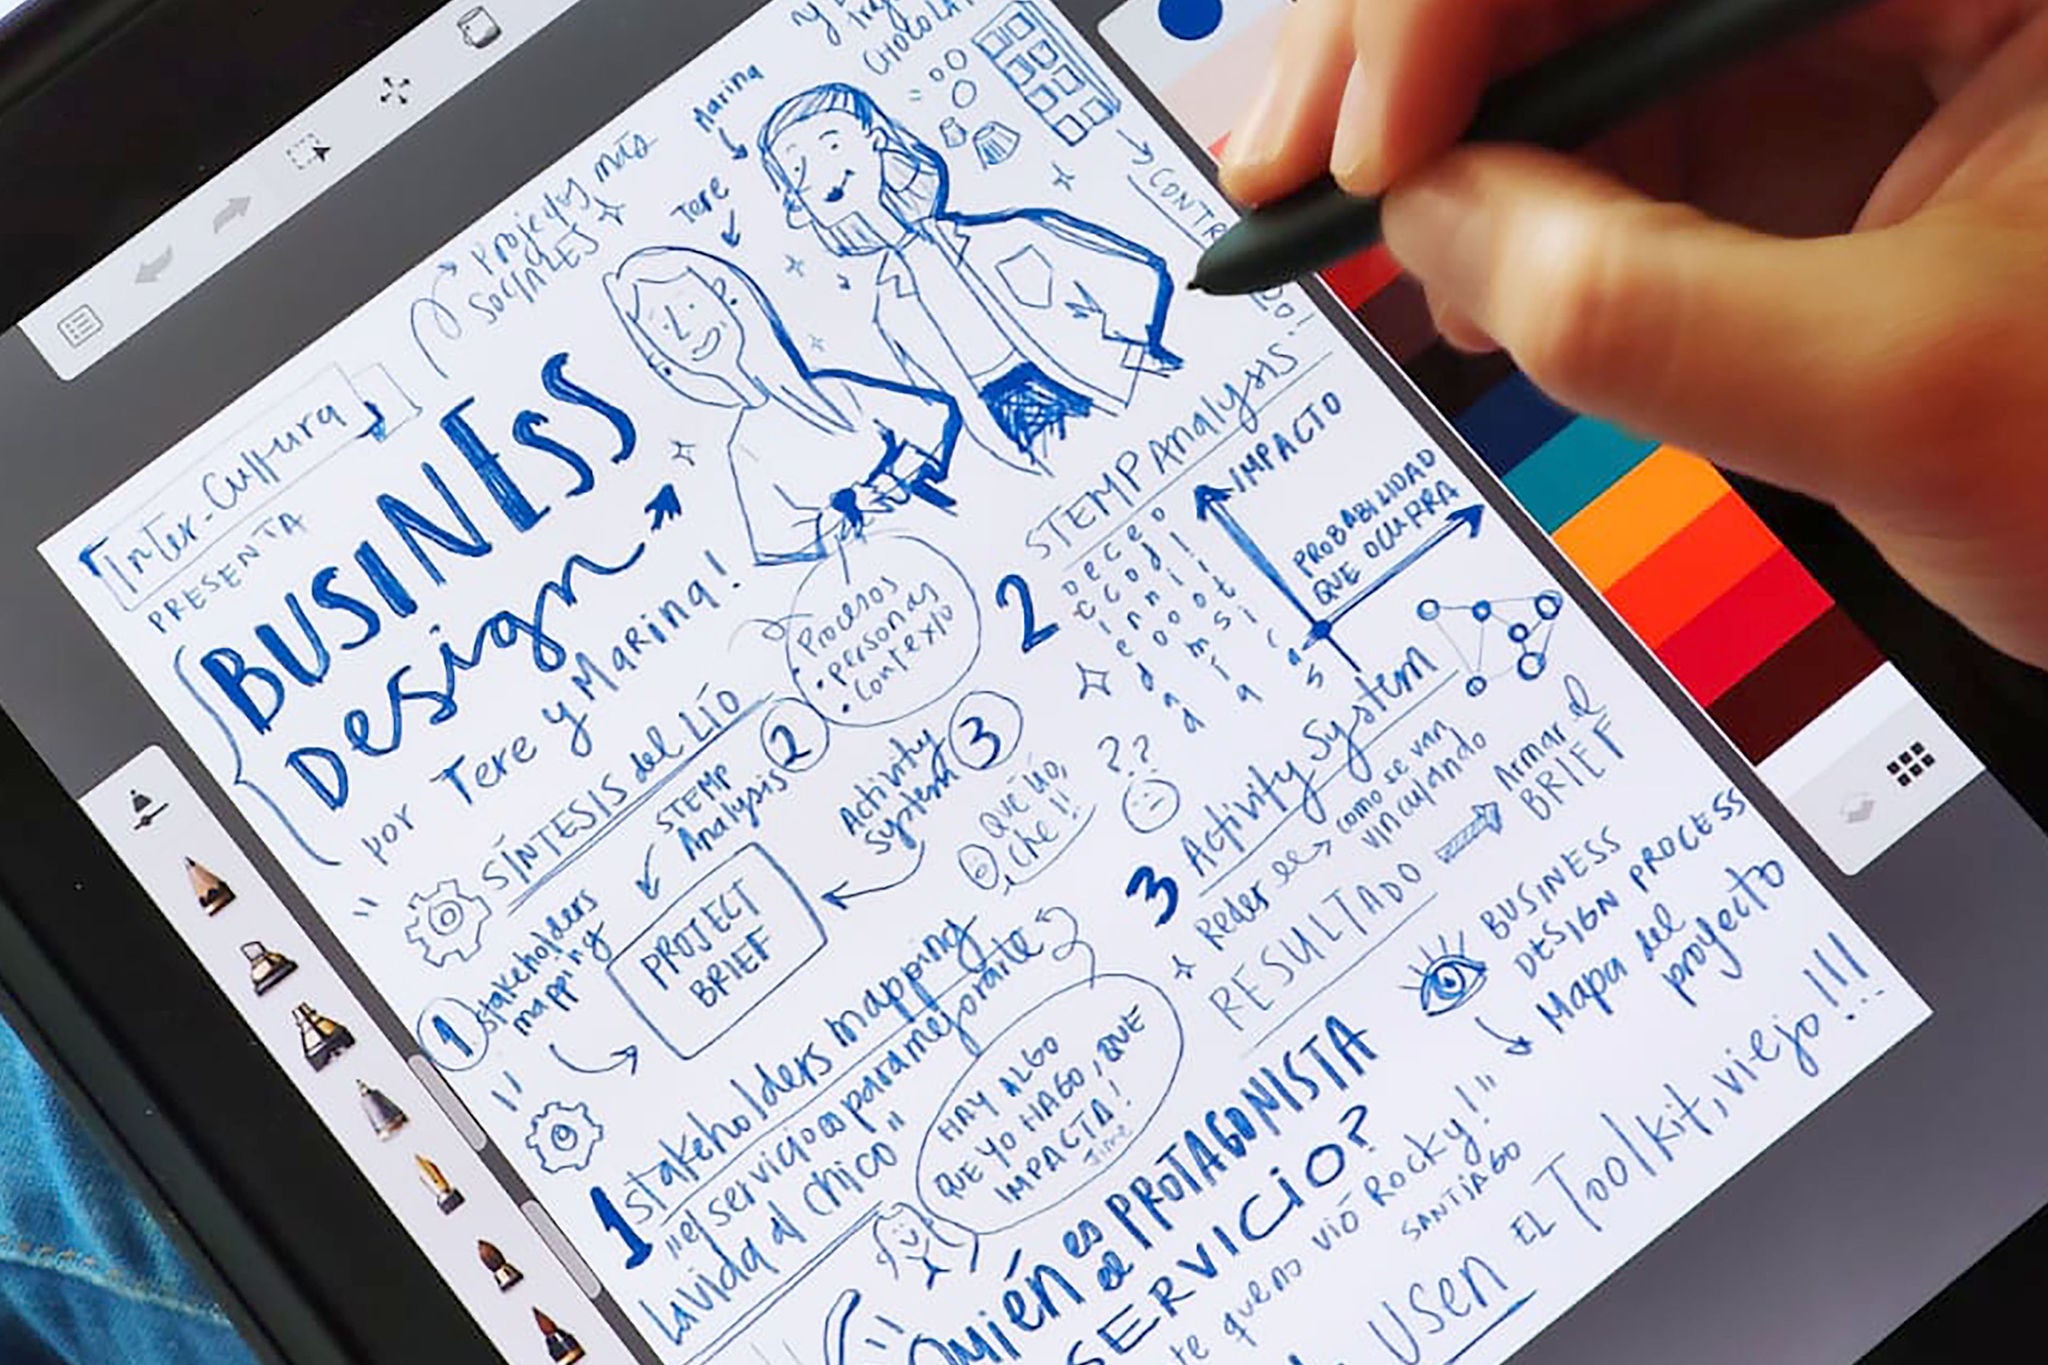 Inter-Cultura
PRESENTA
BUSINESS
Design
por Tere y Marina!
Projectos más
SOCIALES
Tere
Marina
CHOCOLAT
SÍNTESIS del LÍO
Procesos
• personas
• contexto
1 stakeholders
mapping
STEMP
Analysis 2
Activity
System 3
PROJECT
BRIEF
Que lío,
che!!
??
2 STEMP Analysis
Tecnio
Económía
IMPACTO
PROBABILIDAD
QUE OCURRA
3 Activity System
Redes
como se van
vinculando
RESULTADO
Armar el
BRIEF
BUSINESS
DESIGN PROCESS
Mapa del
proyecto
1 stakeholders mapping
"el servicio es para mejorarle
la vida al chico"
HAY ALGO
QUE YO HAGO, QUE
IMPACTA!
Jime
Quién es PROTAGONISTA
el SERVICIO?
te que no vió Rocky!"
SANTIAGO
Usen EL Toolkit, viejo!!!